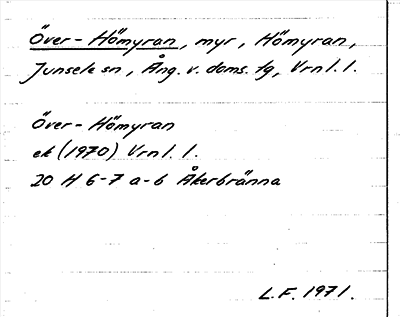 Över-Hömyran, myr, Hömyran,
Junsele sn, Ång. v. doms. tg, Vrnl. l.
Över-Hömyran
ek (1970) Vrnl. l.
20 H 6-7 a-b Åkerbränna
L.F. 1971.